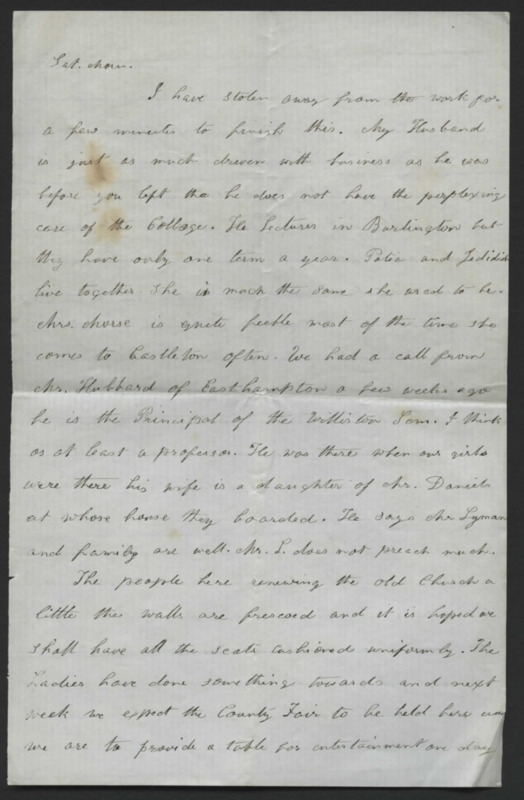 Sat. morn.
I have stolen away from the work for
a few minutes to finish this. My Husband
is just as much driven with business as he was
before you left tho he does not have the perplexing
care of the College. He Lectures in Burlington but
they have only one term a year. and Jedidiah
live together She is much the same she used to be.
Mrs. Morse is quite feeble most of the time she
comes to Castleton often. We had a call from
Mr. Hubbard of Easthampton a few weeks ago
he is the Principal of the Williston Sem. I think
or at least a professor. He was there when our girls
were there his wife is a daughter of Mr. Daniels
at whose house they boarded. He says Mr Lyman
and family are well. Mr. L. does not preach much.
The people here renewing the old Church a
little the walls are frescoed and it is hoped we
shall have all the seats cushioned uniformly. The
Ladies have done something towards and next
week we expect the County Fair to be held here
we are to provide a table for entertainment one day